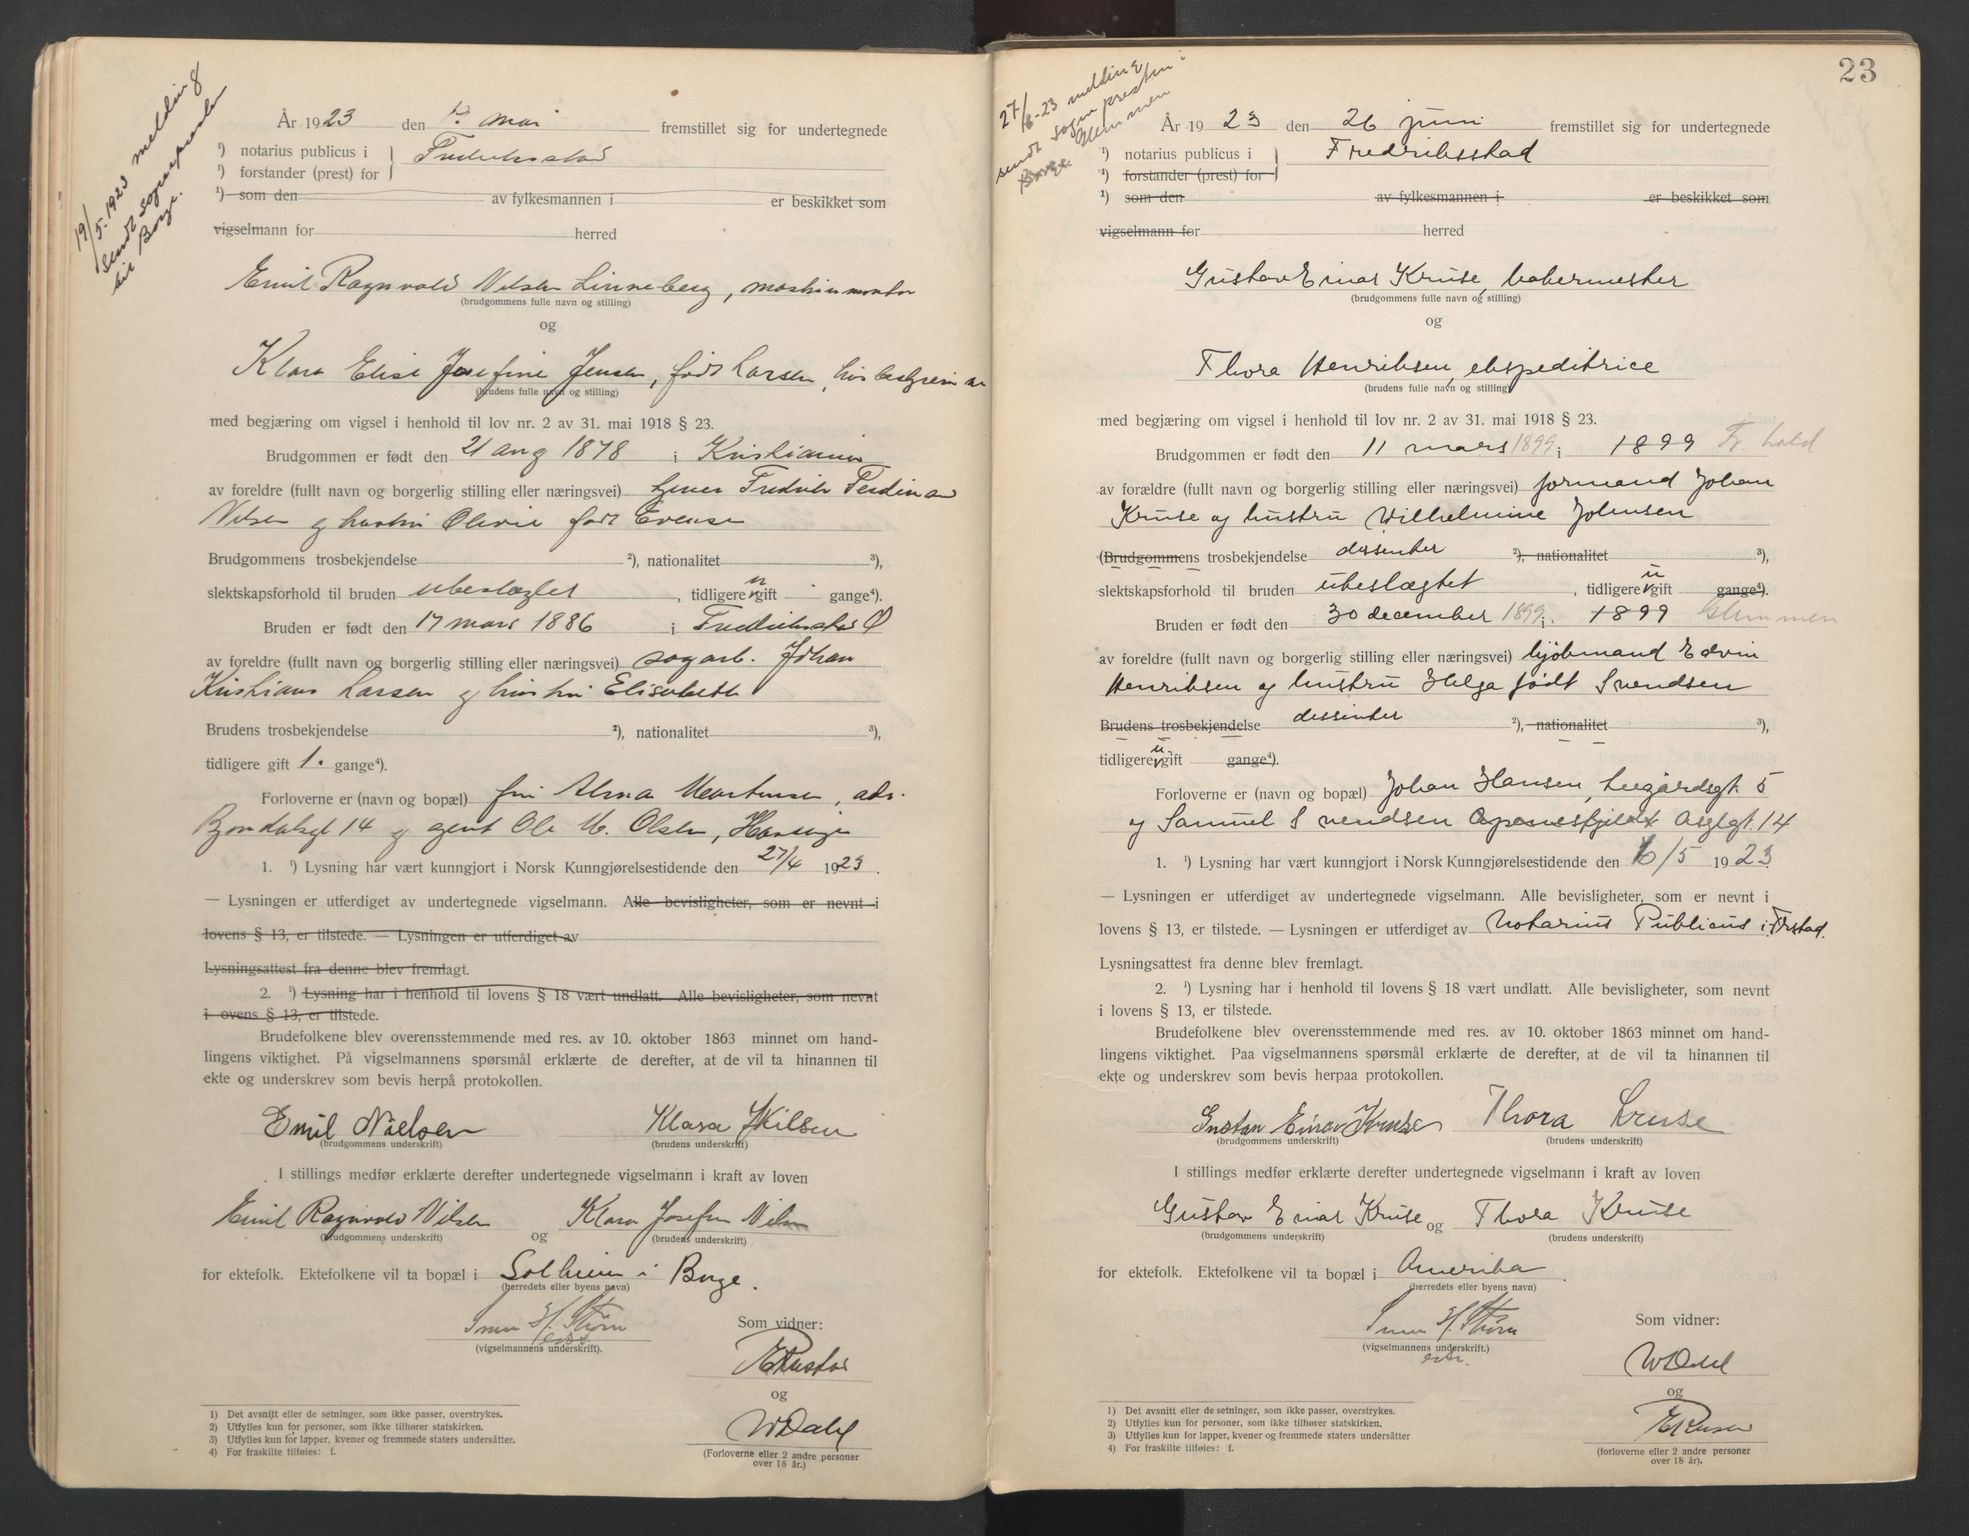 19/5-1923 melding
sendt sognepresten
til Borge.
År 1923 den 12. mai fremstillet sig for undertegnede
¹) notarius publicus i } Fredriksstad
¹) forstander (prest) for
¹) som den av fylkesmannen i er beskikket som
vigselmann for herred
Emil Ragnvald Nilsen Linneberg, maskinmontør
(brudgommens fulle navn og stilling)
og
Klara Elise Josefine Jensen, født Larsen, husbestyrerinne
(brudens fulle navn og stilling)
med begjæring om vigsel i henhold til lov nr. 2 av 31. mai 1918 § 23.
Brudgommen er født den 21 aug 1878 i Kristiania
av foreldre (fullt navn og borgerlig stilling eller næringsvei) Fredrik Ferdinan
Nilsen og hustru Olivie født Evense
Brudgommens trosbekjendelse ²), nationalitet ³),
slektskapsforhold til bruden ubeslægtet, tidligere u gift gange⁴).
Bruden er født den 17 mars 1886 i Fredriksstad Ø
av foreldre (fullt navn og borgerlig stilling eller næringsvei) sagarb. Johan
Kristians Larsen og hustru Elisabeth
Brudens trosbekjendelse ²), nationalitet ³),
tidligere gift 1. gange⁴).
Forloverne er (navn og bopæl) fru Alma Martinsen, adr.
14 og agent Ole M. Olsen,
1. ¹) Lysning har vært kunngjort i Norsk Kunngjørelsestidende den 27/4 1923.
— Lysningen er utferdiget av undertegnede vigselmann. Alle bevisligheter, som er nevnt i
lovens § 13, er tilstede. — Lysningen er utferdiget av
Lysningsattest fra denne blev fremlagt.
2. ¹) Lysning har i henhold til lovens § 18 vært undlatt. Alle bevisligheter, som nevnt
i ovens § 13, er tilstede.
Brudefolkene blev overensstemmende med res. av 10. oktober 1863 minnet om hand-
lingens viktighet. På vigselmannens spørsmål erklærte de derefter, at de vil ta hinannen til
ekte og underskrev som bevis herpå protokollen.
Emil Nielsen Klara Nilsen
(brudgommens underskrift) (brudens underskrift)
I stillings medfør erklærte derefter undertegnede vigselmann i kraft av loven
Emil Ragnvald Nilsen og Klara Josefin Nilsen
(brudgommens underskrift) (brudens underskrift)
for ektefolk. Ektefolkene vil ta bopæl i Solheim i Borge.
(herredets eller byens navn)
H. Strøm
(vigselmannens underskrift).
Som vidner:
og
W Dahl
(Forloverne eller 2 andre personer
over 18 år.)
1) Det avsnitt eller de setninger, som ikke passer, overstrykes.
2) Utfylles kun for personer, som ikke tilhører statskirken.
3) Utfylles kun for lapper, kvener og fremmede staters undersåtter.
4) For fraskilte tilføies: f.
23
27/6-23 melding
sendt sognepresten i
Borge Glemmen
År 1923 den 26 juni fremstillet sig for undertegnede
¹) notarius publicus i } Fredriksstad
¹) forstander (prest) for
¹) som den av fylkesmannen i er beskikket som
vigselmann for herred
Gustav Einar Kruse, bakermester
(brudgommens fulle navn og stilling)
og
Thora Henriksen, ekspeditrice
(brudens fulle navn og stilling)
med begjæring om vigsel i henhold til lov nr. 2 av 31. mai 1918 § 23.
Brudgommen er født den 11 mars 1899 i 1899 Fr.hald
av forældre (fullt navn og borgerlig stilling eller næringsvei) formand Johan
Kruse og hustru Wilhelmine Johnsen
(Brudgommens trosbekjendelse dissenter ²), nationalitet ³),
slektskapsforhold til bruden ubeslægtet, tidligere u gift gange⁴).
Bruden er født den 30 december 1899 i 1899 Glemmen
av foreldre (fullt navn og borgerlig stilling eller næringsvei) kjøbmand Edvin
Henriksen og hustru Helga født Svendsen
Brudens trosbekjendelse dissenter ²), nationalitet ³),
tidligere u gift gange⁴).
Forloverne er (navn og bopæl) Johan Hansen, Leegårdsgt. 5
og Samuel Svendsen Apenesfjeldet Asylgt. 14
1. ¹) Lysning har vært kunngjort i Norsk Kunngjørelsestidende den 16/5 1923
— Lysningen er utferdiget av undertegnede vigselmann. Alle bevisligheter, som er nevnt i
lovens § 13, er tilstede. — Lysningen er utferdiget av Notarius Publicus i Frstad.
Lysningsattest fra denne blev fremlagt.
2. ¹) Lysning har i henhold til lovens § 18 vært undlatt. Alle bevisligheter, som nevnt
i lovens § 13, er tilstede.
Brudefolkene blev overensstemmende med res. av 10. oktober 1863 minnet om hand-
lingens viktighet. Paa vigselmannens spørsmål erklærte de derefter, at de vil ta hinannen til
ekte og underskrev som bevis herpaa protokollen.
Gustav Einar Kruse Thora Kruse
(brudgommens underskrift) (brudens underskrift)
I stillings medfør erklærte derefter undertegnede vigselmann i kraft av loven
Gustav Einar Kruse og Thora Kruse
(brudgommens underskrift) (brudens underskrift)
for ektefolk. Ektefolkene vil ta bopæl i Amerika.
(herredets eller byens navn)
H. Strøm
(vigselmannens underskrift.)
Som vidner:
W Dahl
og
(forloverne eller 2 andre personer
over 18 år.)
1) Det avsnitt eller de setninger, som ikke passer, overstrykes.
2) Utfylles kun for personer, som ikke tilhører statskirken.
3) Utfylles kun for lapper, kvener og fremmede staters undersåtter
4) For fraskilte tilføies: f.